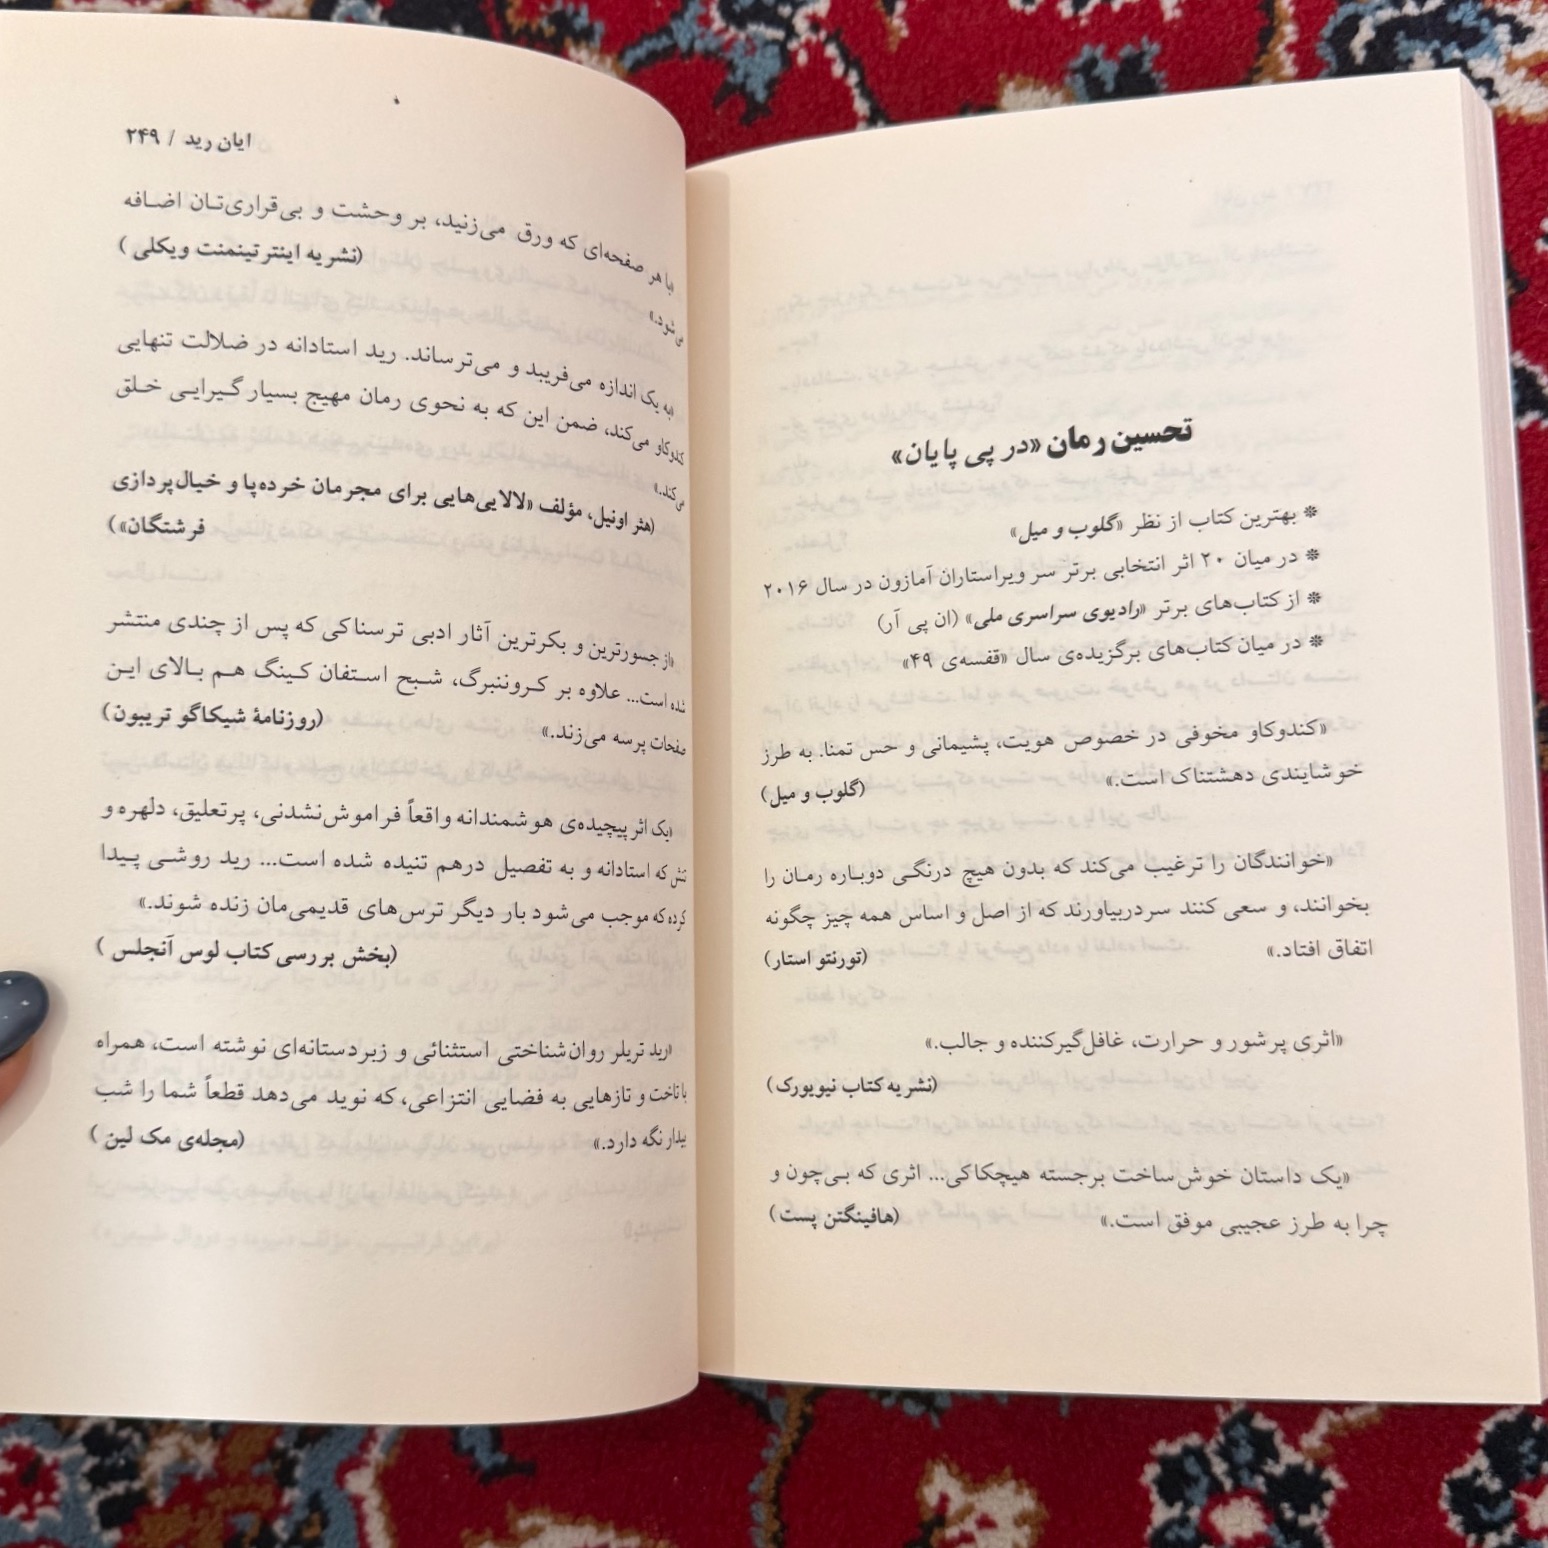 تحسین رمان «در پی پایان»
❊ بهترین کتاب از نظر «گلوب و میل»
❊ در میان ۲۰ اثر انتخابی برتر سر ویراستاران آمازون در سال ۲۰۱۶
❊ از کتاب‌های برتر «رادیوی سراسری ملی» (ان پی آر)
❊ در میان کتاب‌های برگزیده‌ی سال «قفسه‌ی ۴۹»
«کندوکاو مخوفی در خصوص هویت، پشیمانی و حس تمنا. به طرز
خوشایندی دهشتناک است.» (گلوب و میل)
«خوانندگان را ترغیب می‌کند که بدون هیچ درنگی دوباره رمان را
بخوانند، و سعی کنند سردربیاورند که از اصل و اساس همه چیز چگونه
اتفاق افتاد.» (تورنتو استار)
«اثری پرشور و حرارت، غافل‌گیرکننده و جالب.»
(نشریه کتاب نیویورک)
«یک داستان خوش‌ساخت برجسته هیچکاکی... اثری که بی‌چون و
چرا به طرز عجیبی موفق است.» (هافینگتن پست)
ایان رید / ۲۴۹
«با هر صفحه‌ای که ورق می‌زنید، بر وحشت و بی‌قراری‌تان اضافه
می‌شود.» (نشریه اینترتینمنت ویکلی )
«به یک اندازه می‌فریبد و می‌ترساند. رید استادانه در ضلالت تنهایی
کندوکاو می‌کند، ضمن این که به نحوی رمان مهیج بسیار گیرایی خلق
می‌کند.»
(هثر اونیل، مؤلف «لالایی‌هایی برای مجرمان خرده‌پا و خیال‌پردازی
فرشتگان»)
«از جسورترین و بکرترین آثار ادبی ترسناکی که پس از چندی منتشر
شده است... علاوه بر کروننبرگ، شبح استفان کینگ هم بالای این
صفحات پرسه می‌زند.» (روزنامهٔ شیکاگو تریبون)
«یک اثر پیچیده‌ی هوشمندانه واقعاً فراموش‌نشدنی، پرتعلیق، دلهره و
تنش که استادانه و به تفصیل درهم تنیده شده است... رید روشی پیدا
کرده که موجب می‌شود بار دیگر ترس‌های قدیمی‌مان زنده شوند.»
(بخش بررسی کتاب لوس آنجلس )
«رید تریلر روان‌شناختی استثنائی و زبردستانه‌ای نوشته است، همراه
با تاخت و تازهایی به فضایی انتزاعی، که نوید می‌دهد قطعاً شما را شب
بیدار نگه دارد.» (مجله‌ی مک لین )